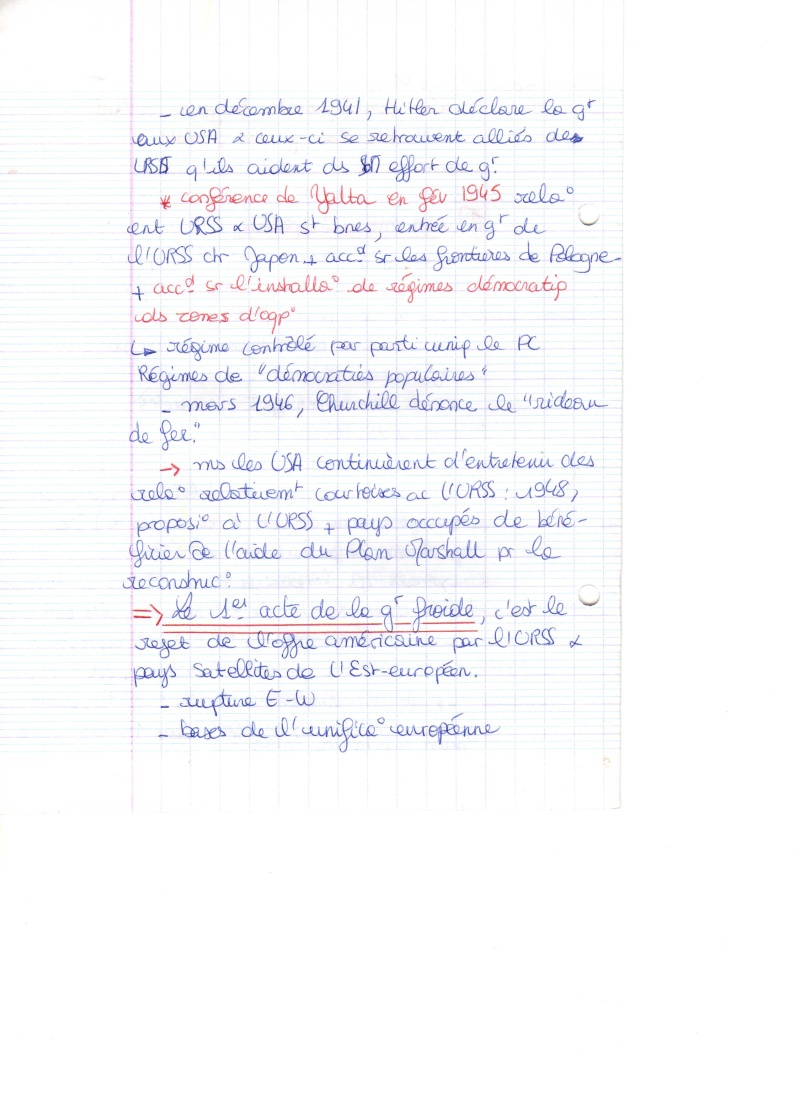 - en décembre 1941, Hitler déclare la gr
aux USA & ceux-ci se retrouvent alliés des
URSS q'ils aident ds effort de gr.
* conférence de Yalta en fév 1945 rela°
ent URSS & USA st bnes, entrée en gr de
l'URSS ctr Japon + accd sr les frontières de Pologne
+ accd sr l'installa° de régimes démocratiq
ds zones d'oqp°
↳ régime contrôlé par parti uniq le PC
Régimes de "démocraties populaires"
- mars 1946, Churchill dénonce le "rideau
de fer."
→ ms les USA continuèrent d'entretenir des
rela° relativemt courtoises ac l'URSS : 1948,
proposi° à l'URSS + pays occupés de béné-
ficier de l'aide du Plan Marshall pr la
reconstruc°
=> Le 1er acte de la gr froide, c'est le
rejet de l'offre américaine par l'URSS &
pays satellites de l'Est-européen.
- rupture E-W
- bases de l'unifica° européenne